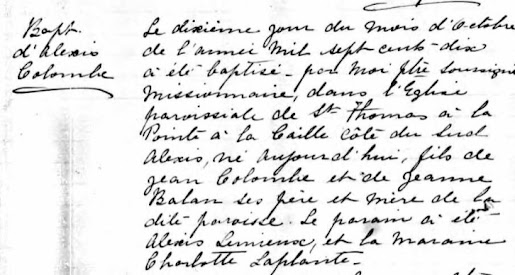 Bapt.
d'Alexis
Colombe
Le dixième jour du mois d'Octobre
de l'année Mil sept cent-dix
a été baptisé - par Moi ptre soussigné
Missionnaire, dans l'Eglise
paroissiale de St Thomas à la
Pointe à la Caille côté du Sud
Alexis, né Aujourd'hui, fils de
Jean Colombe et de Jeanne
Balan ses père et mère de la
dite paroisse. Le parain a été
Alexis Lemieux, et la Maraine
Charlotte Laplante -